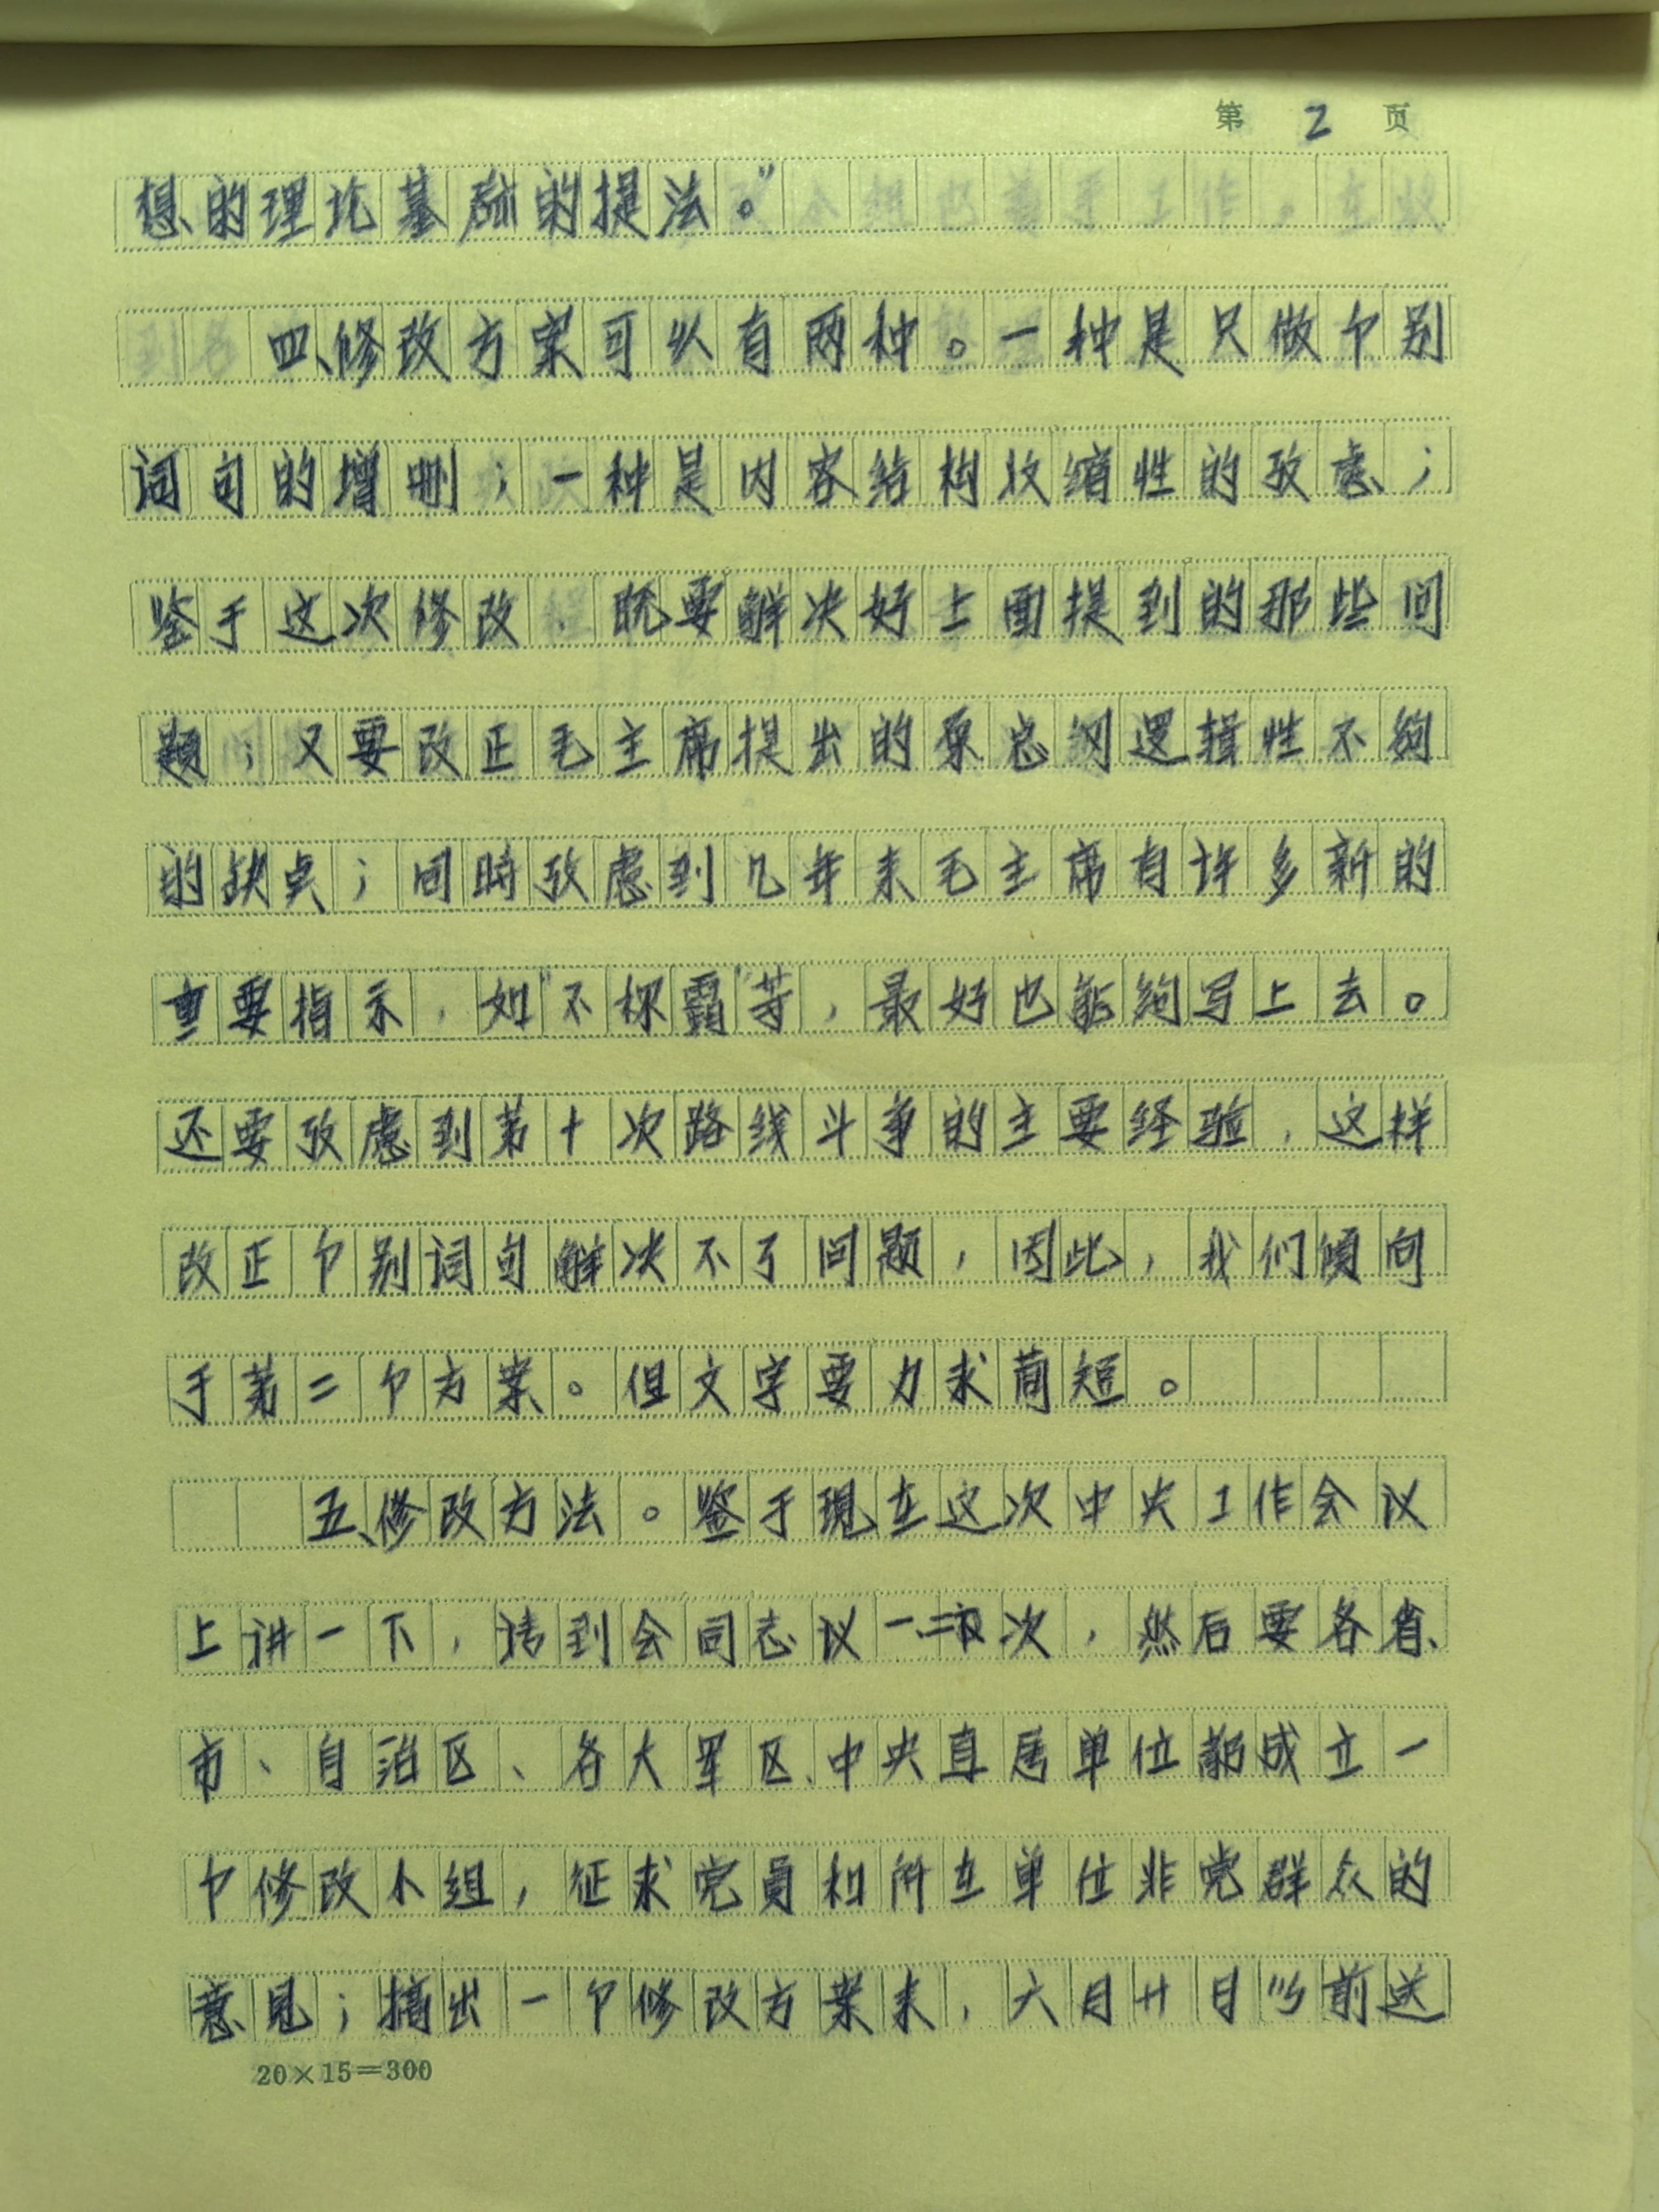 第 2 页
想的理论基础的提法。”
四、修改方案可以有两种。一种是只做个别
词句的增删；一种是内容结构收缩性的攷虑；
鉴于这次修改，既要解决好上面提到的那些问
题；又要改正毛主席提出的原总纲逻辑性不够
的缺点；同時攷虑到几年来毛主席有许多新的
重要指示，如“不称霸”等，最好也能夠写上去。
还要攷虑到第十次路线斗争的主要经验，这样
改正个别词句解决不了问题，因此，我们倾向
于第二个方案。但文字要力求简短。
五、修改方法。鉴于现在这次中央工作会议
上讲一下，请到会同志议一、二次，然后要各省、
市、自治区、各大军区、中央直属单位都成立一
个修改小组，征求党员和所在单位非党群众的
意见；搞出一个修改方案来，六月廿日以前送
20×15=300